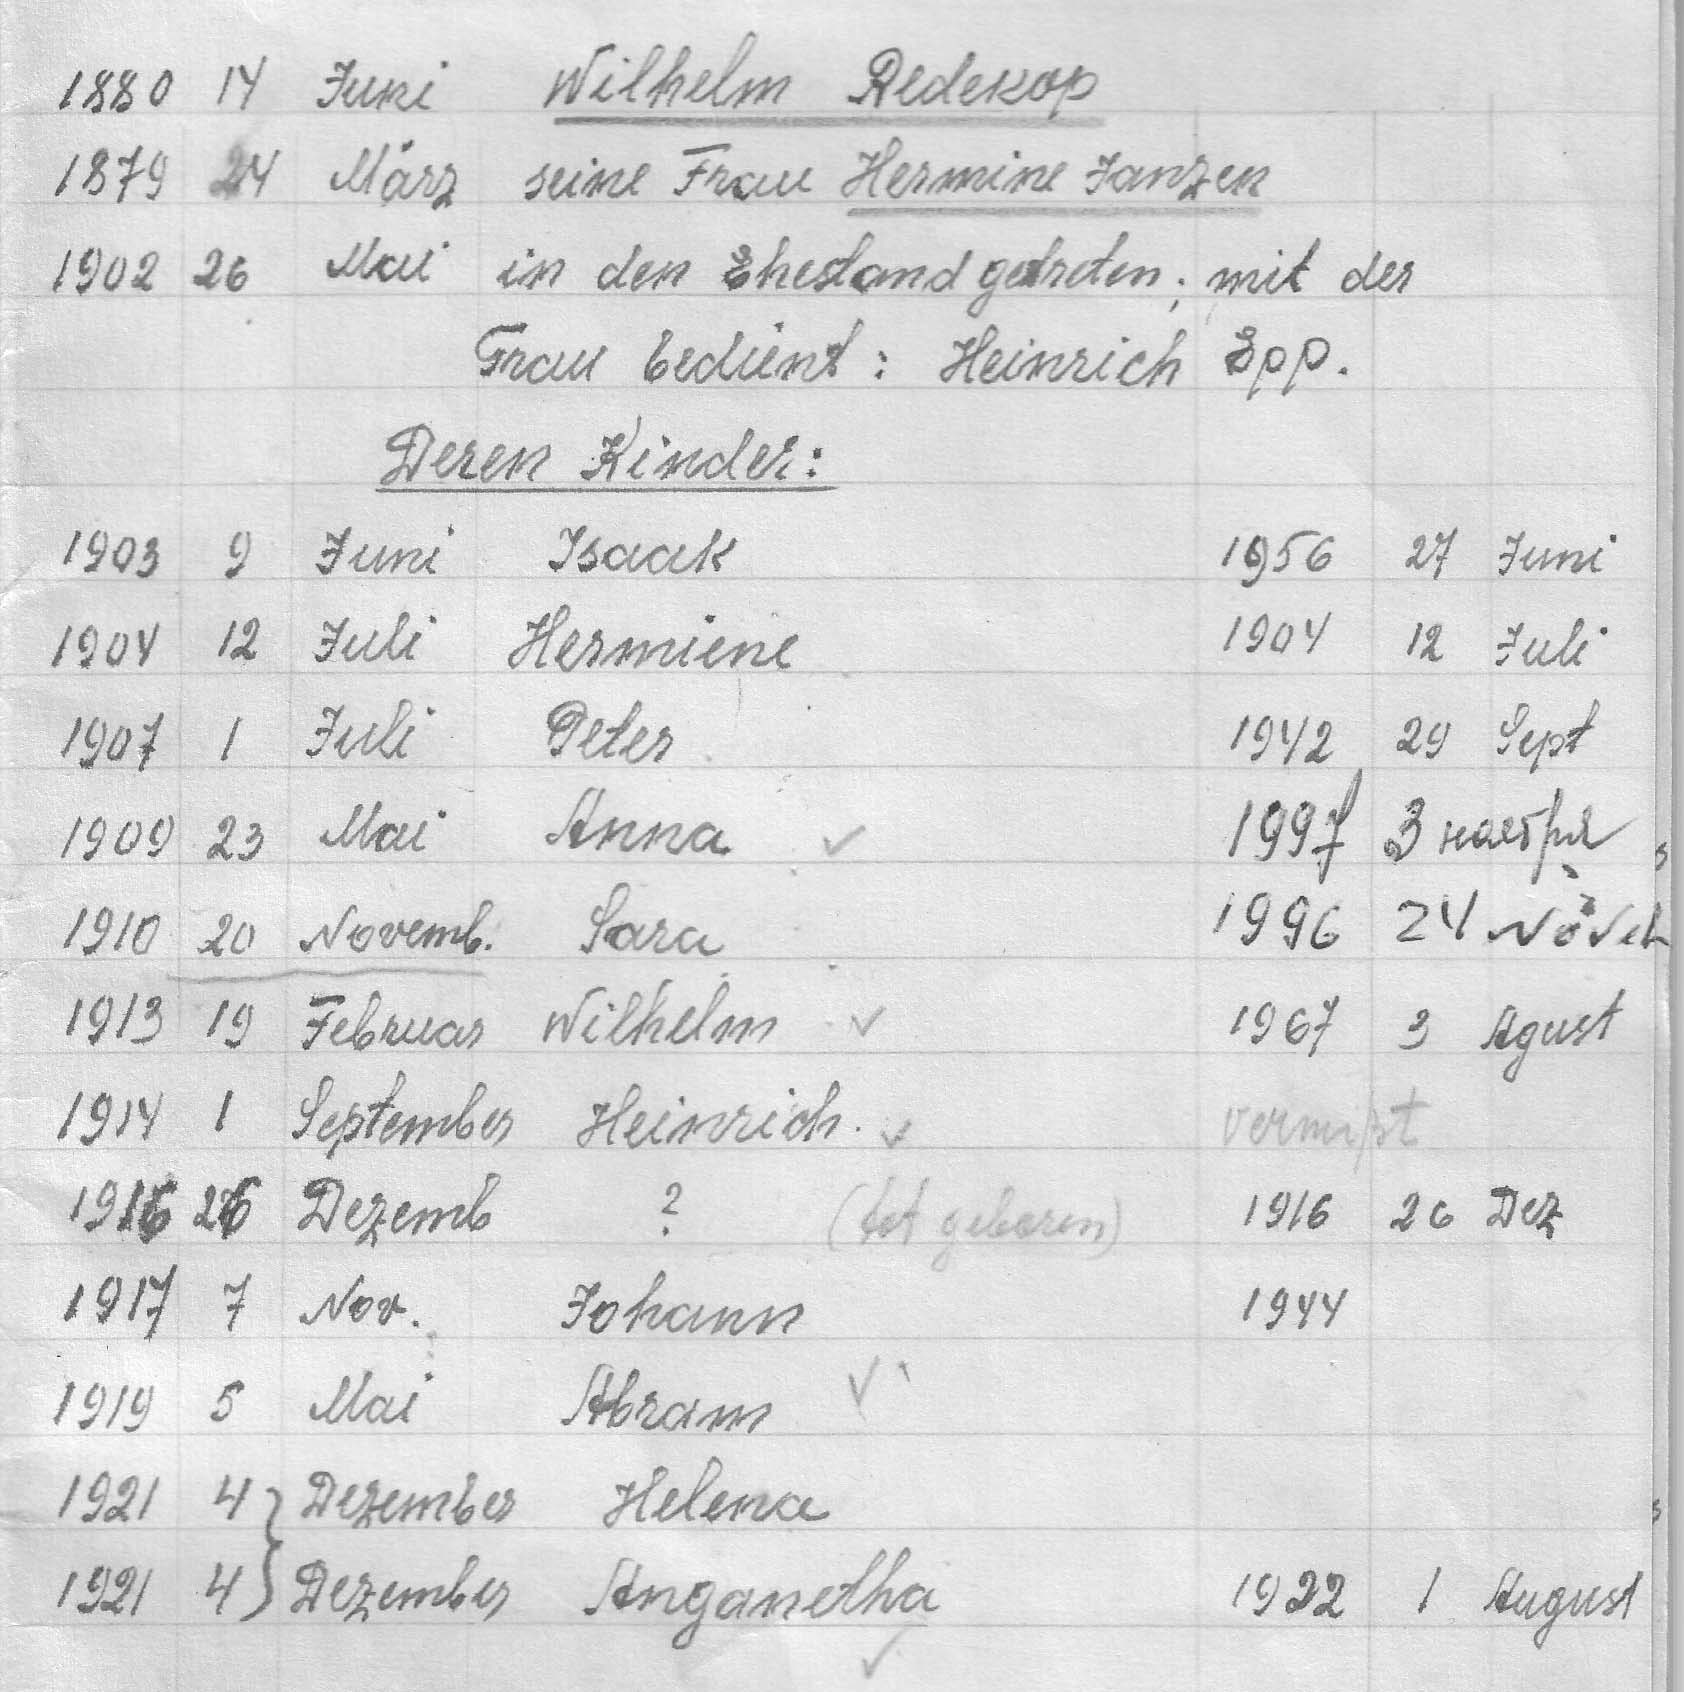 1880 14 Juni Wilhelm Redekop
1879 24 März seine Frau Hermine Janzen
1902 26 Mai in den Ehestand getreten; mit der
Frau bedient: Heinrich Epp.
Deren Kinder:
1903 9 Juni Isaak 1956 27 Juni
1904 12 Juli Hermiene 1904 12 Juli
1907 1 Juli Peter 1942 29 Sept
1909 23 Mai Anna ✓ 1997 3 ноября
1910 20 Novemb. Sara 1996 24
1913 19 Februar Wilhelm ✓ 1967 3 Agust
1914 1 September Heinrich. ✓ vermißt
1916 26 Dezemb ? (tot geboren) 1916 26 Dez
1917 7 Nov. Johann 1944
1919 5 Mai Abram ✓
1921 4 } Dezember Helena
1921 4 } Dezember Anganetha 1922 1 August
✓